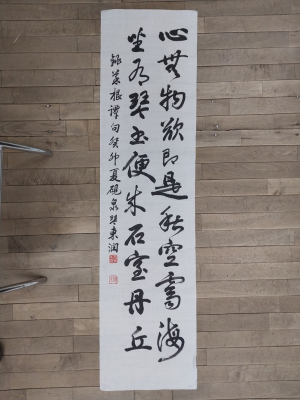 心無物欲即是秋空霽海
坐有琴書便成石室丹丘
錄菜根譚句癸卯夏硯泉 東潤